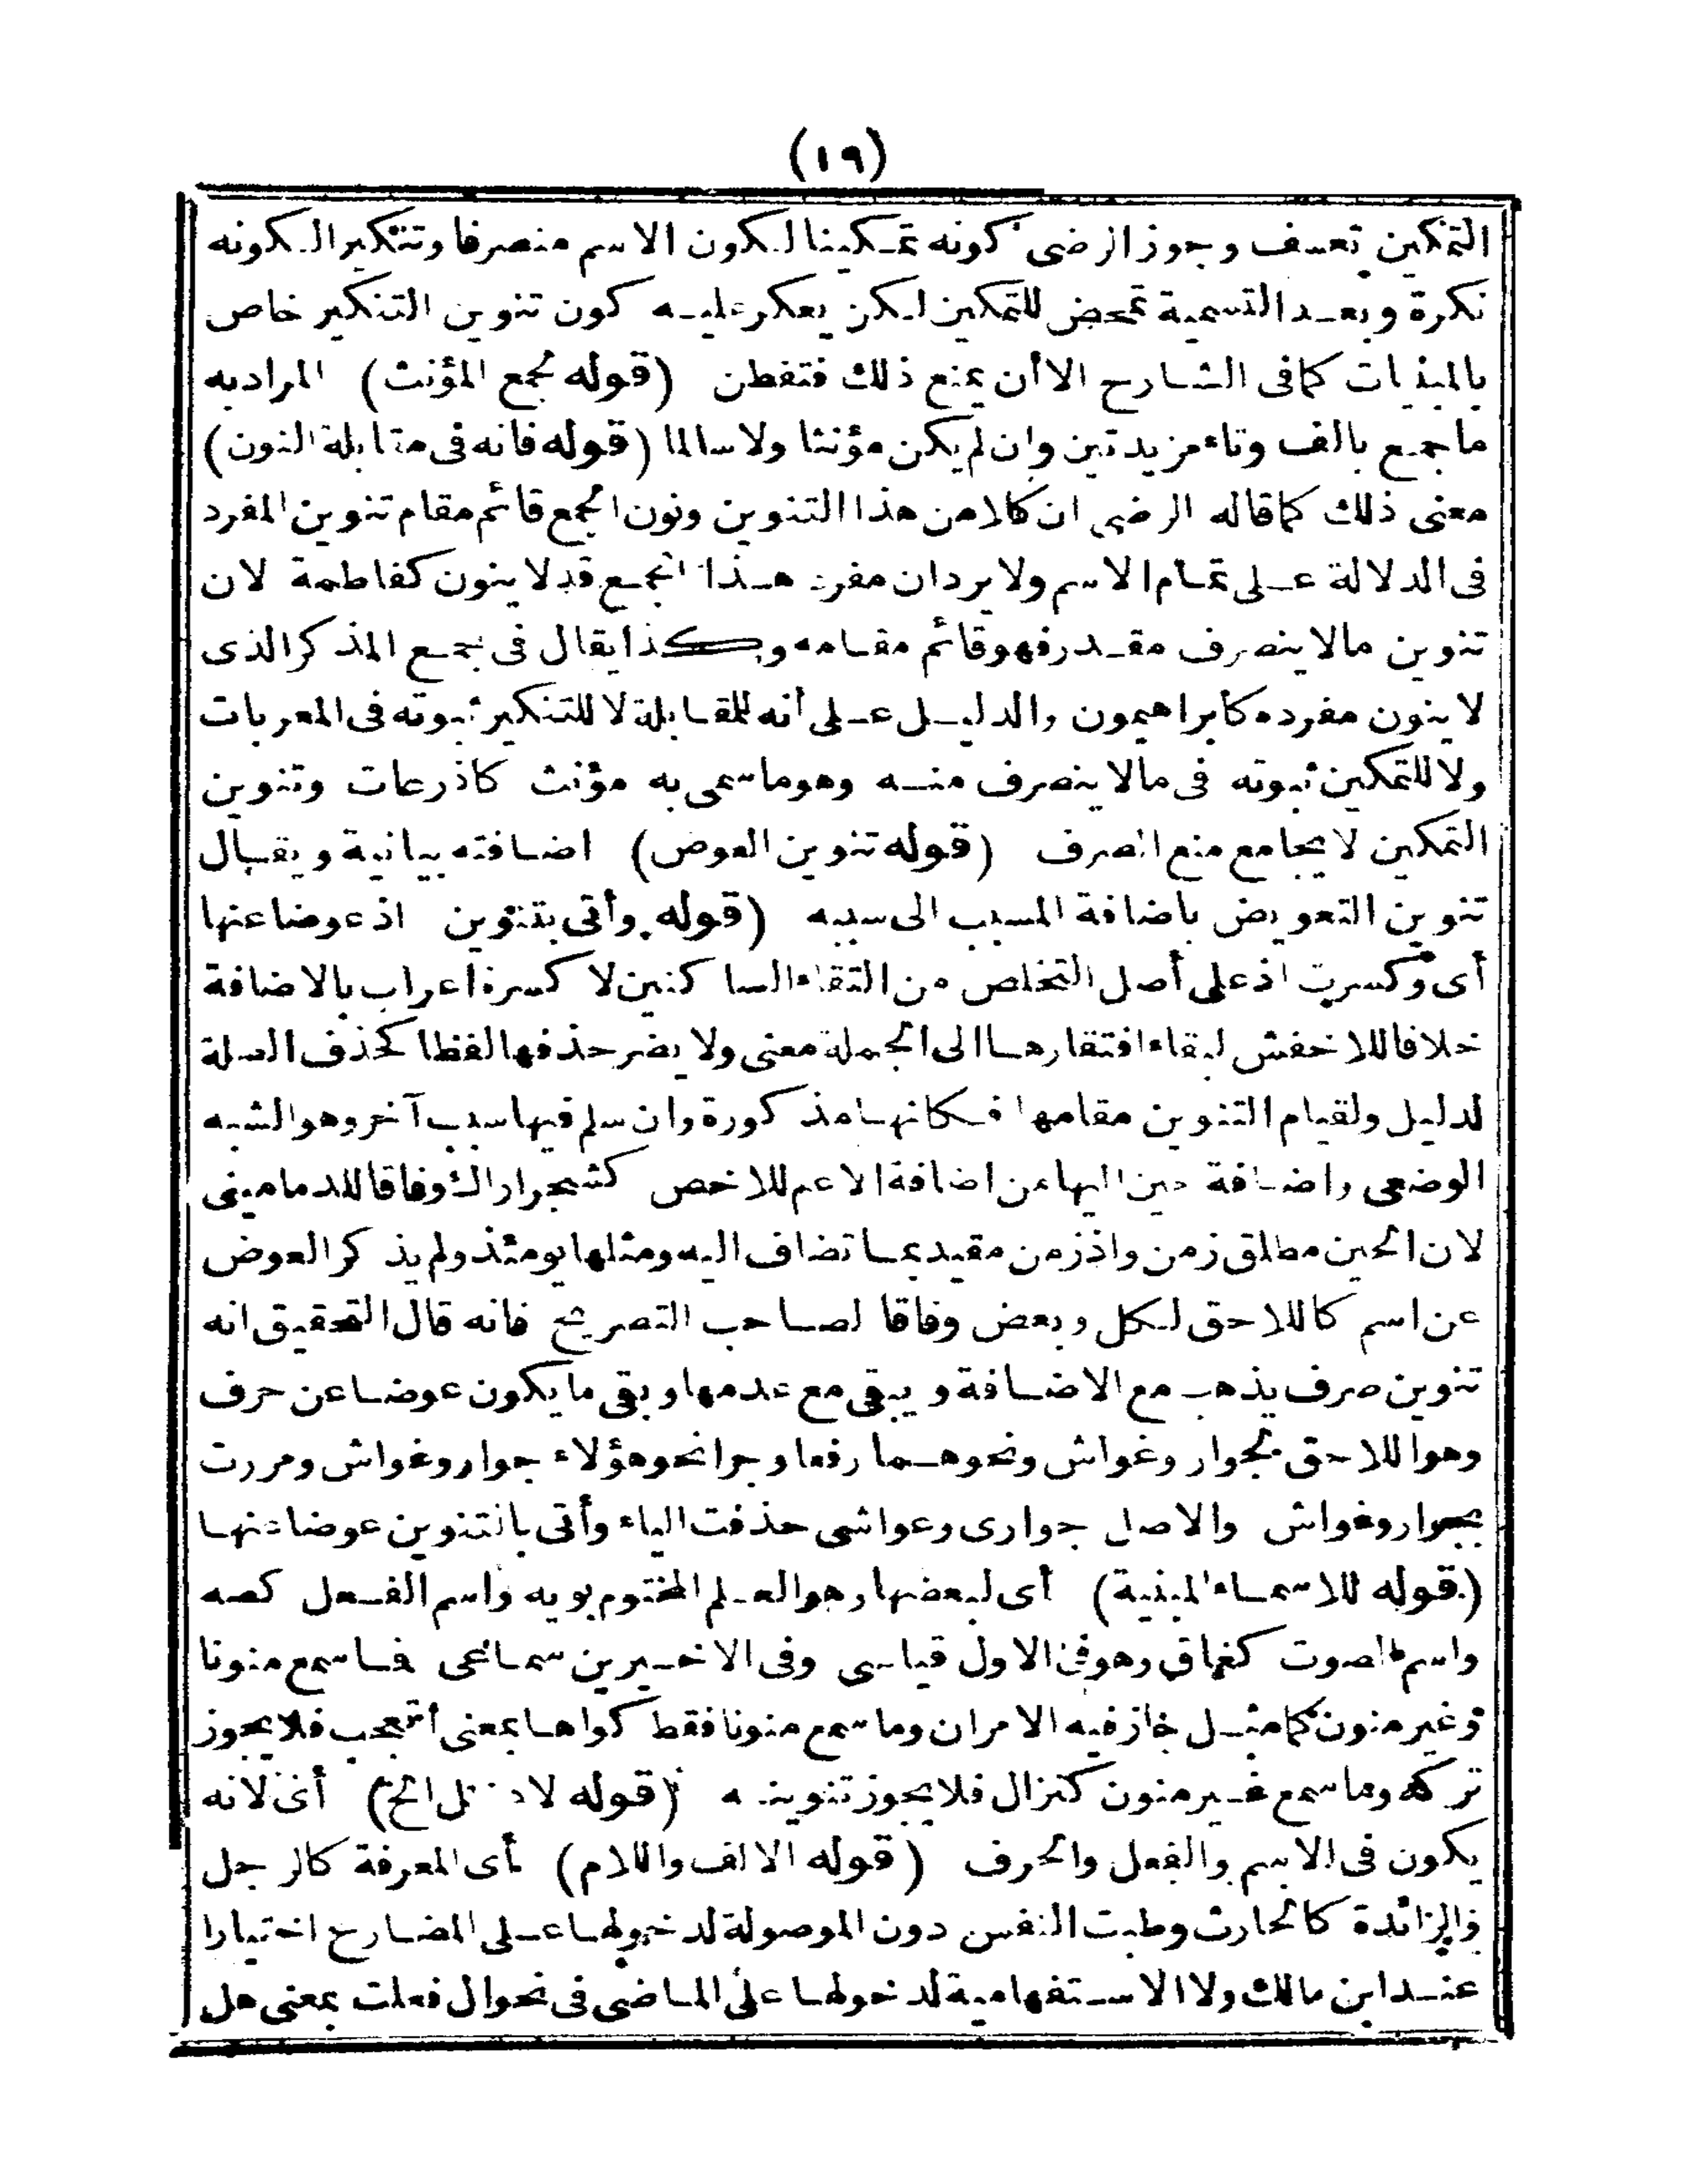 (١٩)
التمكين تعسف وجوز الرضى كونه تمكينا لكون الاسم منصرفا وتنكيرا لكونه
نكرة وبعد التسمية تمحض للتمكين لكن يعكر عليه كون تنوين التنكير خاص
بالمبنيات كما فى الشارح الا أن يمنع ذلك فتفطن (قوله لجمع المؤنث) المراد به
ما جمع بالف وتاء مزيدتين وان لم يكن مؤنثا ولا سالما (قوله فانه فى مقابلة النون)
معنى ذلك كما قاله الرضى ان كلا من هذا التنوين ونون الجمع قائم مقام تنوين المفرد
فى الدلالة على تمام الاسم ولا يرد ان مفرد هذا الجمع قد لا ينون كفاطمة لان
تنوين مالا ينصرف مقدر فهو قائم مقامه وكذا يقال فى جمع المذكر الذى
لا ينون مفرده كأبراهيمون والدليل على أنه للمقابلة لا للتنكير ثبوته فى المعربات
ولا للتمكين ثبوته فى مالا ينصرف منه وهو ما سمى به مؤنث كاذرعات وتنوين
التمكين لا يجامع منع الصرف (قوله تنوين العوض) اضافته بيانية ويقال
تنوين التعويض باضافة المسبب الى سببه (قوله وأتى بتنوين اذ عوضا عنها
أى وكسرت اذ على أصل التخلص من التقاء الساكنين لا كسرة اعراب بالاضافة
خلافا للاخفش لبقاء افتقارها الى الجملة معنى ولا يضر حذفها لفظا كحذف الصلة
لدليل ولقيام التنوين مقامها فكانها مذكورة وان سلم فيها سبب آخر وهو الشبه
الوضعى واضافة حين اليها من اضافة الاعم للاخص كشجر اراك وفاقا للدمامينى
لان الحين مطلق زمن واذ زمن مقيد بما تضاف اليه ومثلها يومئذ ولم يذكر العوض
عن اسم كاللاحق لكل وبعض وفاقا لصاحب التصريح فانه قال التحقيق انه
تنوين صرف يذهب مع الاضافة ويبقى مع عدمها وبقى ما يكون عوضا عن حرف
وهو اللاحق لجوار وغواش ونحوهما رفعا وجرا نحو هؤلاء جوار وغواش ومررت
بجوار وغواش والاصل جوارى وعواشى حذفت الياء وأتى بالتنوين عوضا عنها
(قوله للاسماء المبنية) أى لبعضها وهو العلم المختوم بويه واسم الفعل كصه
واسم الصوت كغاق وهو فى الاول قياسى وفى الاخيرين سماعى فما سمع منونا
وغير منون كما مثل جاز فيه الامران وما سمع منونا فقط كواها بمعنى أتعجب فلا يجوز
تركه وما سمع غير منون كنزال فلا يجوز تنوينه (قوله لا الخ) أى لانه
يكون فى الاسم والفعل والحرف (قوله الالف واللام) أى المعرفة كالرجل
والزائدة كالحارث وطبت النفس دون الموصولة لدخولها على المضارع اختيارا
عند ابن مالك ولا الاستفهامية لدخولها على الماضى فى نحو ال فعلت بمعنى هل